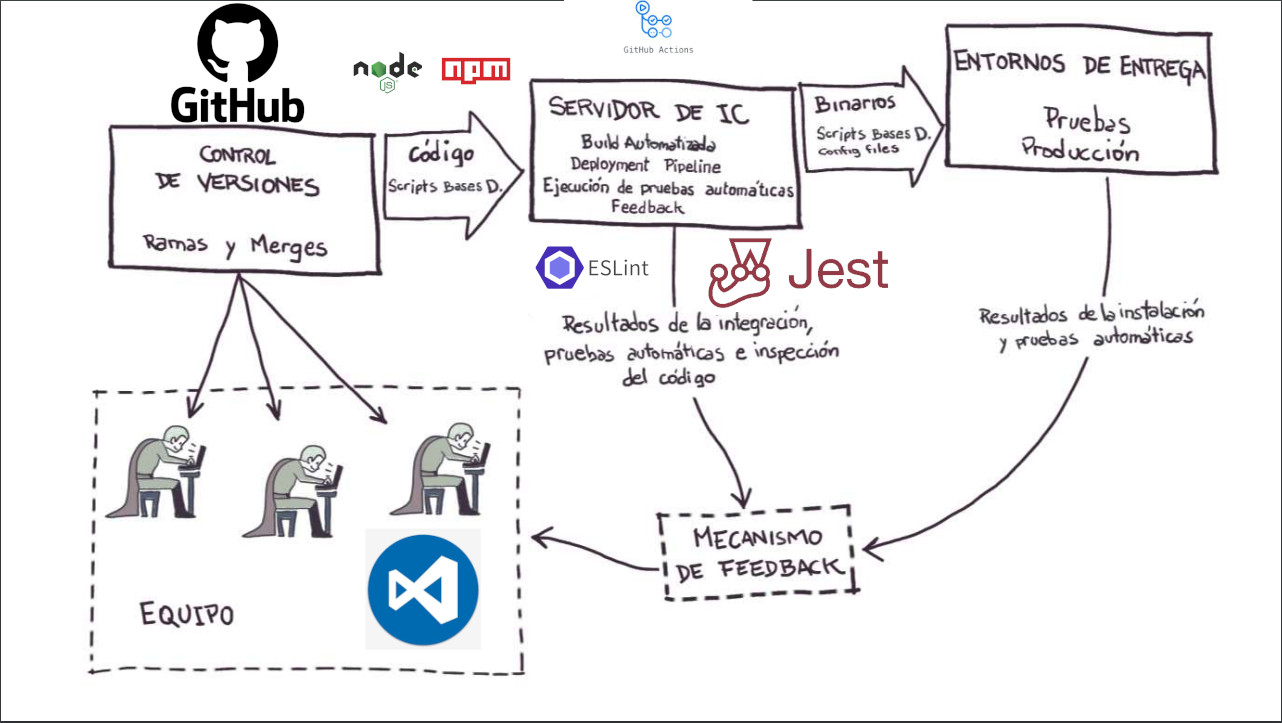 GitHub
node
JS
npm
GitHub Actions
CONTROL
DE VERSIONES
Ramas y Merges
Código
Scripts Bases D.
SERVIDOR DE IC
Build Automatizada
Deployment Pipeline
Ejecución de pruebas automáticas
Feedback
Binarios
Scripts Bases D.
Config Files
ENTORNOS DE ENTREGA
Pruebas
Producción
ESLint
Jest
Resultados de la integración,
pruebas automáticas e inspección
del código
Resultados de la instalación
y pruebas automáticas
MECANISMO
DE FEEDBACK
EQUIPO